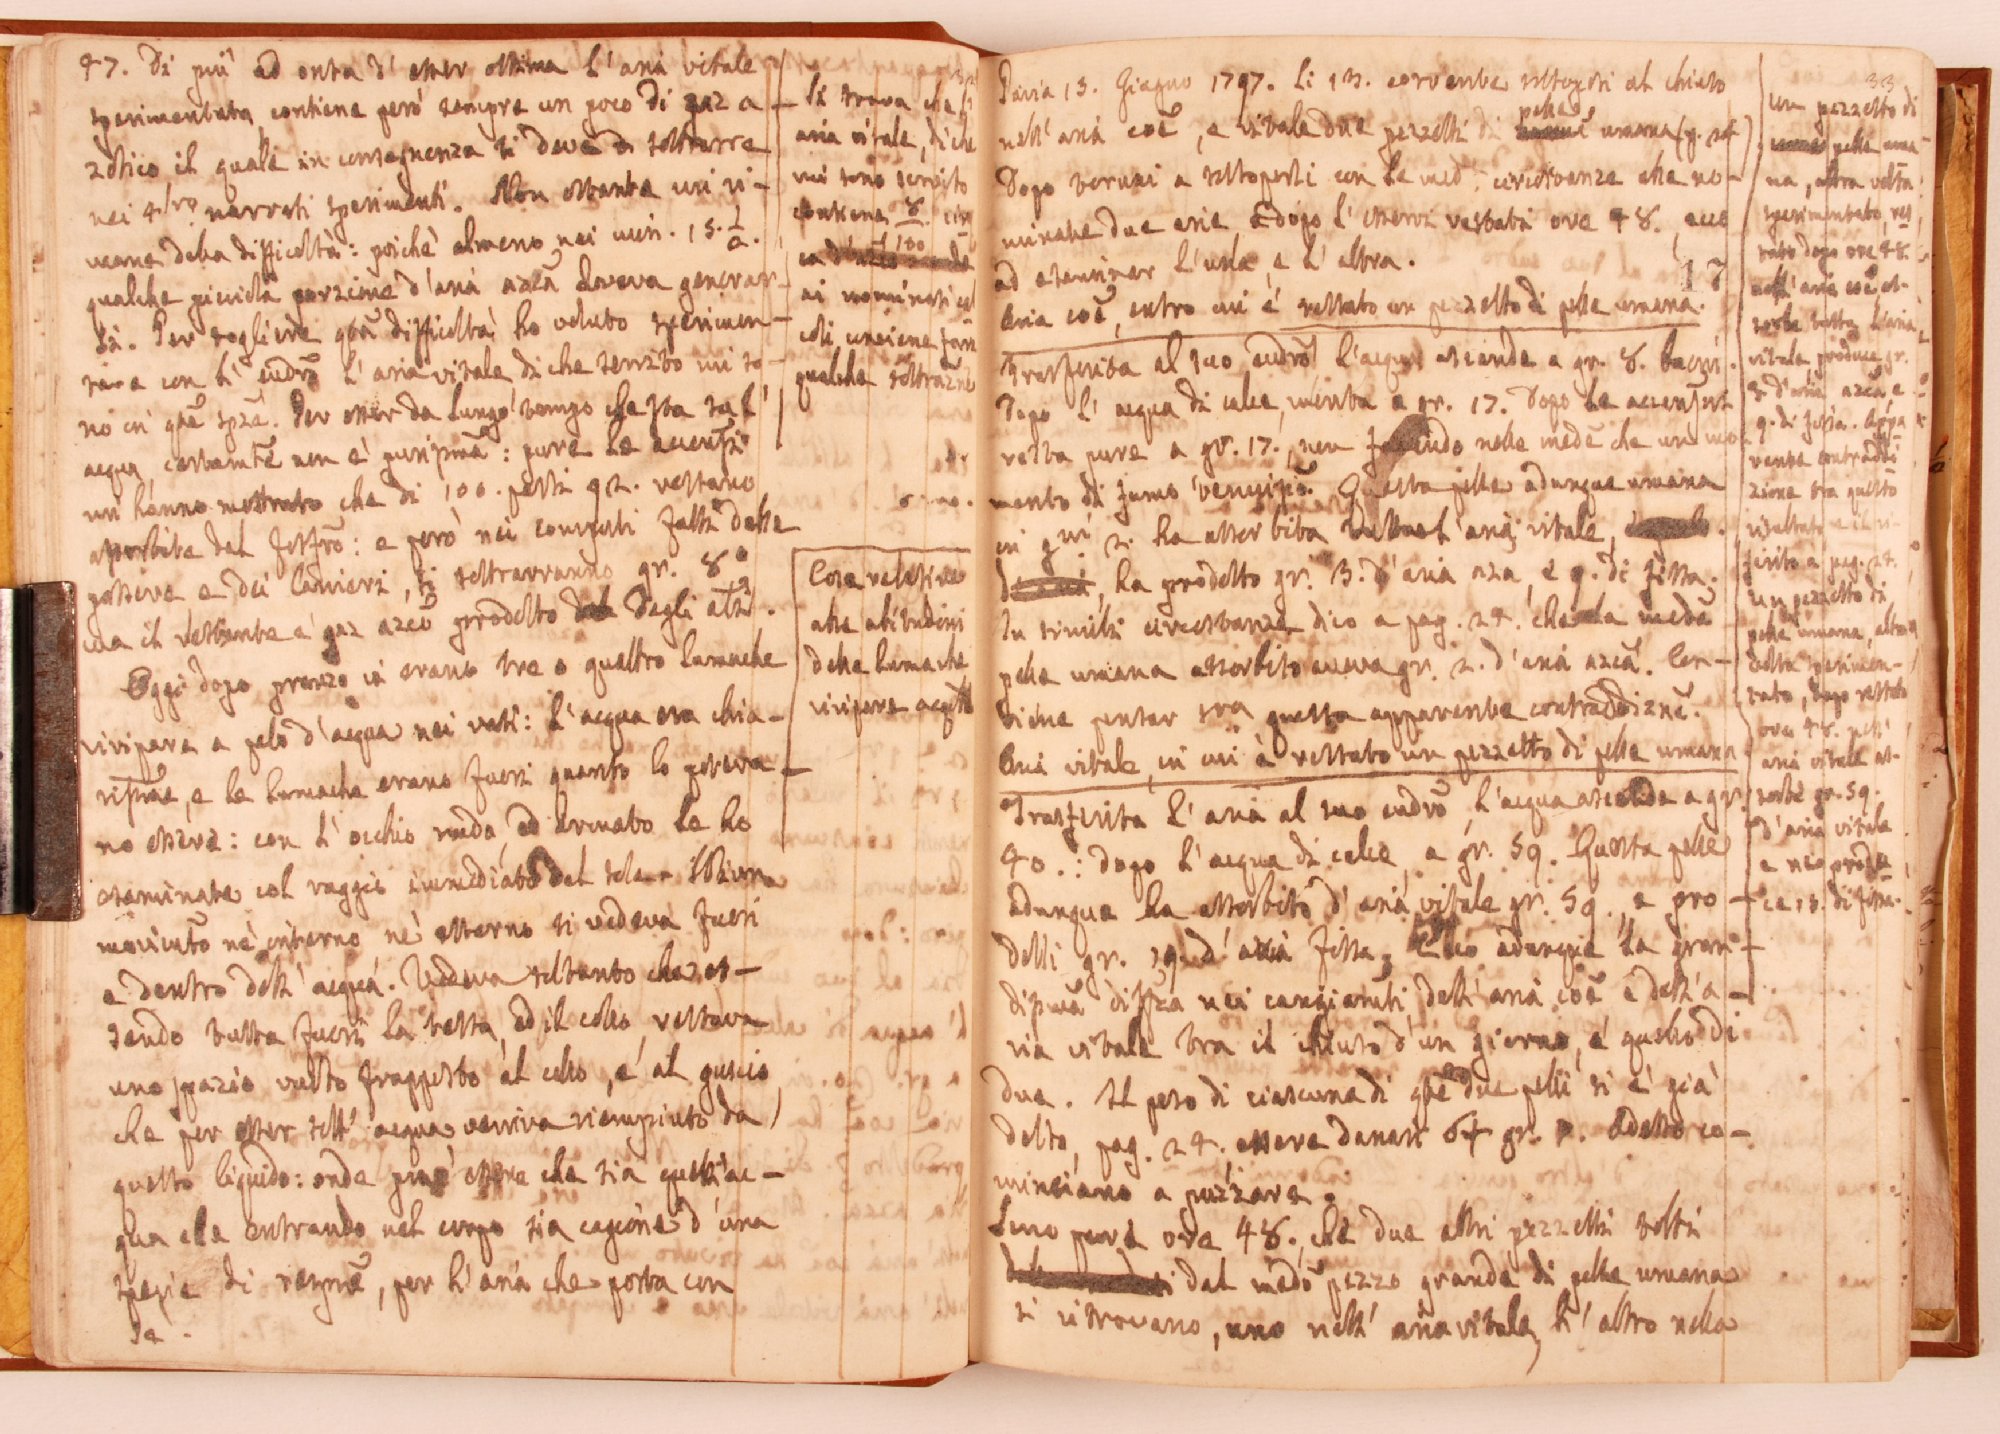 47. Di più ad onta d'esser ottima l'aria vitale
sperimentata, contiene però sempre un poco di gaz a-
zotico il quale in conseguenza si deve sottrarre
nei 4tro narrati sperimenti. Non ostante cui ri-
mane della difficoltà: poichè almeno nei num. 15. 1/2.
qualche piccola porzione d'aria azcã doveva generar-
si. Per togliere qtã difficoltà ho voluto sperimen-
tare con l' eudrõ l'aria vitale di che servito mi so-
no in qtẽ spze. Per esser da lungo tempo che sta sul'
acqua, certamtẽ non è purissmã: pure le accensñi
mi hanno mostrato che di 100. parti 92. restano
assorbite dal fosfrõ: e però nei computi fatti delle
e dei Carnieri, si sottrarranno gr. 8
ma il restante è gaz azcõ prodotto dagli
Oggi dopo pranzo vi erano tre o quattro lumache
vivipare a pelo d'acqua nei vasi: l'acqua era chia-
rissmã, e le lumache erano fuori quanto lo poteva-
no essere: con l'occhio nudo, ed armato le ho
esaminate col raggio immediato del sole. Niun
movimtõ nè interno nè esterno si vedeva fuori
e dentro dell'acqua. Vedeva soltanto che es-
sendo tutta fuori la testa, ed il collo, restava
uno spazio vuoto frapposto al collo, e al guscio,
che per esser sott' acqua veniva riempiuto da
questo liquido: onde può essere che sia quest'ac-
qua che entrando nel corpo sia cagione d'una
spezie di respnẽ, per l'aria che porta con
se.
Si trova che l'
aria vitale, di che
mi sono servito
contiene 8/100 cir
ca d'azco onde
ai nominati cal
coli conviene farne
qualche sottrazñe
Cose relative
alle abitudini
delle lumache
vivipare acqtẽ
33
Pavia 13. Giugno 1797. Li 13. corrente sottoposi al chiuso
nell'aria coẽ, e vitale due pezzetti di pelle umana (p. 24)
Dopo tornai a sottoporli con le med. circostanze alle no-
minate due arie. E dopo l'esservi restati ore 48., ecco
ad esaminar l'una, e l'altra.
17
Aria coẽ, entro cui è restato un pezzetto di pelle umana.
Trasferita al suo eudrõ l'acqua ascende a gr. 8.
Dopo l'acqua di calce, monta a gr. 17. Dopo le accensñi
resta pure a gr. 17., non facendo nelle medẽ che un mo-
mento di fumo Questa pelle adunque umana
in gni 2. ha assorbita tutta l'aria vitale,
ha prodotto gr. 3. d'aria aza, e 9. di fissa.
In simili circostanze dico a pag. 24. che la medã
pelle umana assorbito aveva gr. 2. d'aria azcã. Con-
viene pensar sra questa apparente contraddiznẽ.
Aria vitale, in cui è restato un pezzetto di pelle umana
Trasferita l'aria al suo eudrõ, l'acqua ascende a gr
40.: dopo l'acqua di calce, a gr. 59. Questa pelle
adunque ha assorbito d'aria vitale gr. 59., e pro-
dotti gr. 19. d'aria fissa. Ecco adunque la gran-
dissmã diffzã nei cangiamti dell'aria coẽ e dell'a-
ria vitale tra il chiuso d'un giorno, e quello di
due. Il peso di ciascuna di qtẽ due pelli si è già
detto, pag. 24. essere danari 64 gr. Adesso co-
minciano a puzzare.
Sono pure ore 48., che due altri pezzetti tolti
dal medõ pezzo grande di pelle umana
si ritrovano, uno nell'aria vitale, l'altro nella
un pezzetto di
pelle uma
na, altra volta
sperimentato, res
tato dopo ore 48.
nell'aria coẽ as-
sorbe tutta l'aria
vitale, produce gr.
3 d'aria azcã e
9. di fissa. Appa
rente contraddi
zione tra questo
risultato e il ri-
ferito a pag. 24.
un pezzetto di
pelle umana, altra
volta sperimen-
tato, dopo restato
ore 48. nell'
aria vitale as-
sorbe gr. 59.
d'aria vitale
e ne produ
ce 19. di fissa.